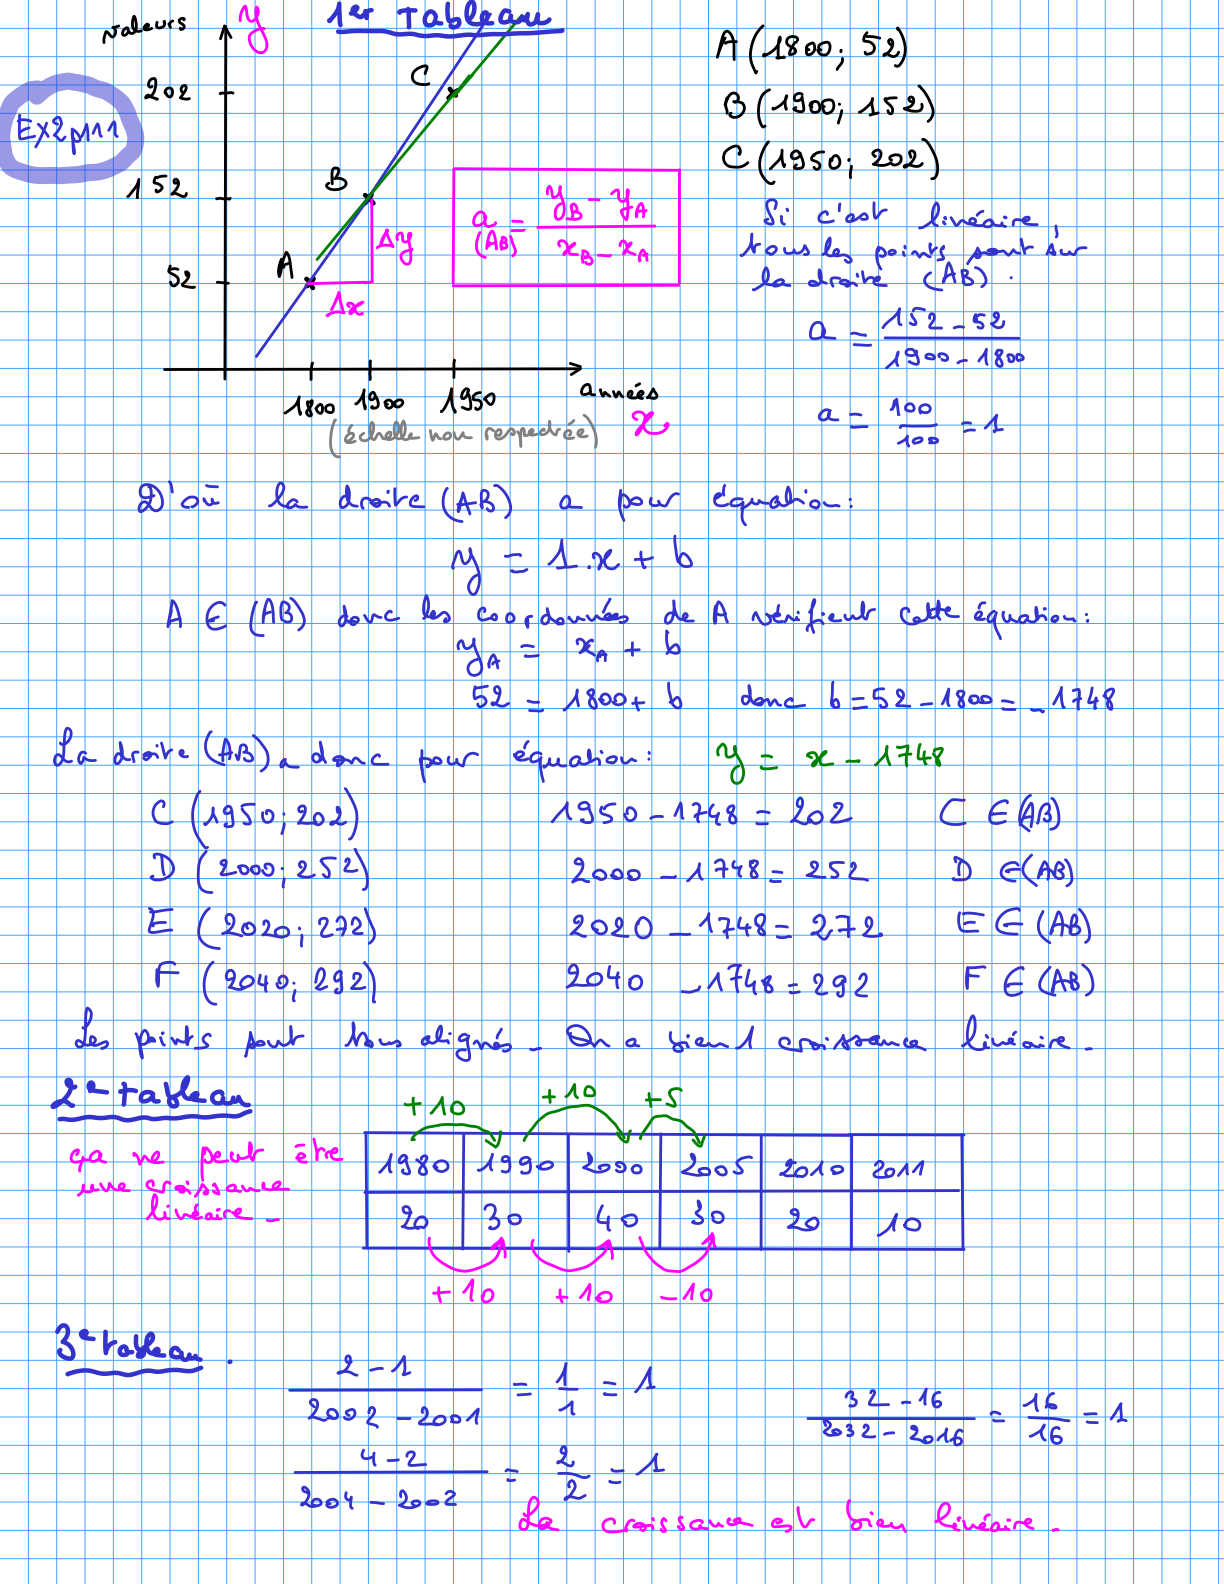 1er tableau
valeurs
y
Ex2p111
202
152
52
C
B
A
Δy
Δx
a(AB) = (yB - yA) / (xB - xA)
1800 1900 1950
années
x
(échelle non respectée)
A (1800; 52)
B (1900; 152)
C (1950; 202)
Si c'est linéaire,
tous les points sont sur
la droite (AB).
a = (152 - 52) / (1900 - 1800)
a = 100/100 = 1
D'où la droite (AB) a pour équation:
y = 1.x + b
A ∈ (AB) donc les coordonnées de A vérifient cette équation:
yA = xA + b
52 = 1800 + b donc b = 52 - 1800 = -1748
La droite (AB) a donc pour équation: y = x - 1748
C (1950; 202) 1950 - 1748 = 202 C ∈ (AB)
D (2000; 252) 2000 - 1748 = 252 D ∈ (AB)
E (2020; 272) 2020 - 1748 = 272 E ∈ (AB)
F (2040; 292) 2040 - 1748 = 292 F ∈ (AB)
Les points sont tous alignés. On a bien 1 croissance linéaire.
2e tableau
ça ne peut être
une croissance
linéaire.
+10 +10 +5
1980 1990 2000 2005 2010 2011
20 30 40 30 20 10
+10 +10 -10
3e tableau.
(2 - 1) / (2002 - 2001) = 1/1 = 1
(32 - 16) / (2032 - 2016) = 16/16 = 1
(4 - 2) / (2004 - 2002) = 2/2 = 1
La croissance est bien linéaire.